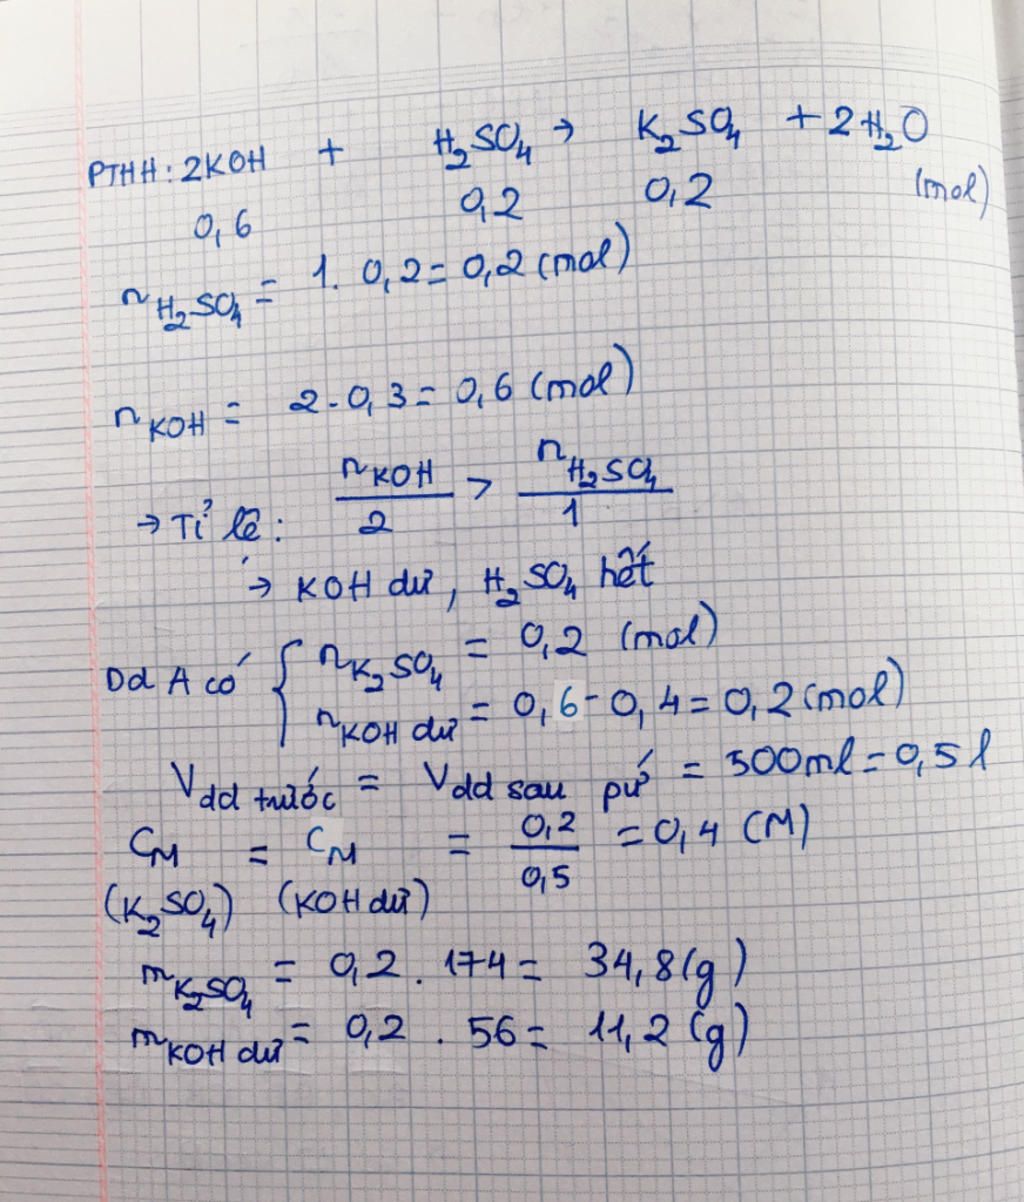 PTHH: 2KOH + H₂SO₄ → K₂SO₄ + 2H₂O
0,6 0,2 0,2 (mol)
n H₂SO₄ = 1. 0,2 = 0,2 (mol)
n KOH = 2.0,3 = 0,6 (mol)
→ Tỉ lệ: n KOH / 2 > n H₂SO₄ / 1
→ KOH dư, H₂SO₄ hết
Dd A có { n K₂SO₄ = 0,2 (mol)
n KOH dư = 0,6 - 0,4 = 0,2 (mol)
V dd trước = V dd sau pứ = 500ml = 0,5 l
CM (K₂SO₄) = CM (KOH dư) = 0,2 / 0,5 = 0,4 (M)
m K₂SO₄ = 0,2 . 174 = 34,8 (g)
m KOH dư = 0,2 . 56 = 11,2 (g)